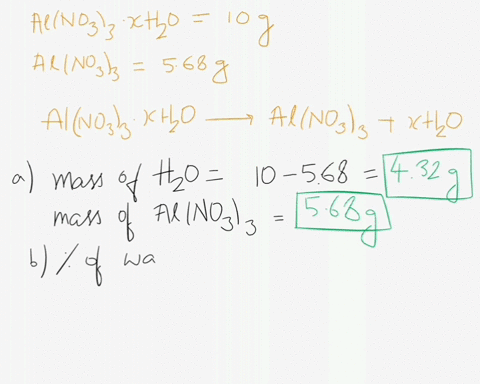 Al(NO3)3·xH2O = 10 g
Al(NO3)3 = 5.68 g
Al(NO3)3·xH2O ⟶ Al(NO3)3 + xH2O
a) mass of H2O = 10 - 5.68 = 4.32 g
mass of Al(NO3)3 = 5.68 g
b) % of wa